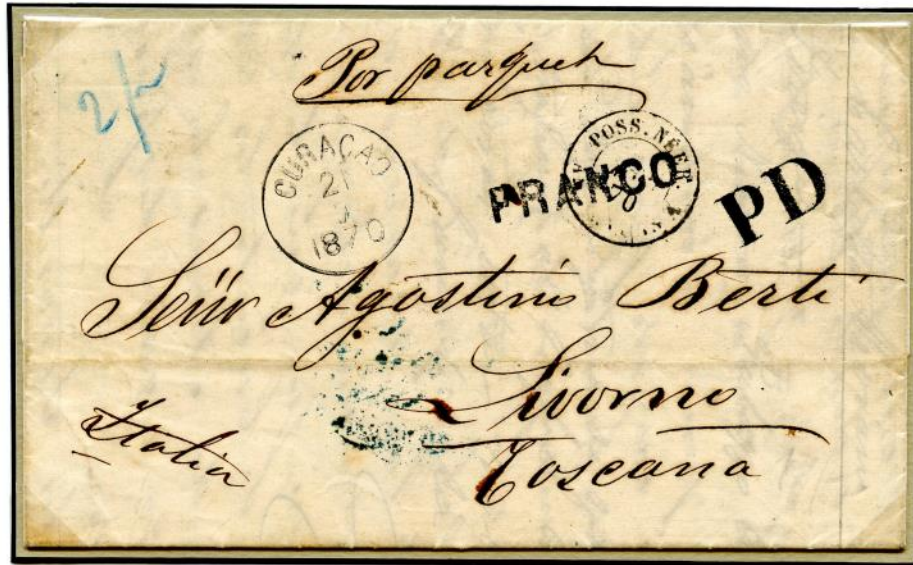 2/
Por parquet
CURAÇAO
21
1870
POSS. NÉER.
FRANCO
PD
Señr Agostino Berti
Livorno
Toscana
Italia